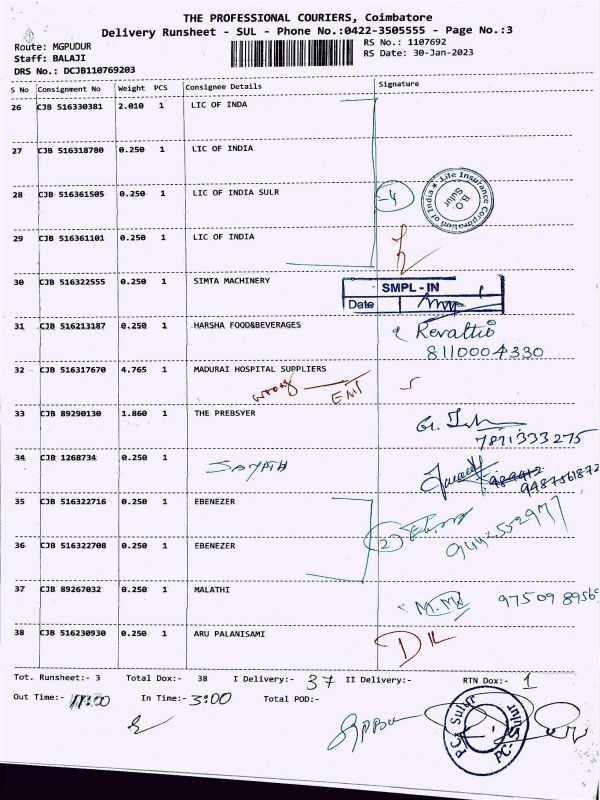 THE PROFESSIONAL COURIERS, Coimbatore
Delivery Runsheet - SUL - Phone No.:0422-3505555 - Page No.:3
Route: MGPUDUR
RS No.: 1107692
Staff: BALAJI
RS Date: 30-Jan-2023
DRS No.: DCJB110769203
S No Consignment No Weight PCS Consignee Details Signature
26 CJB 516330381 2.010 1 LIC OF INDA
27 CJB 516318780 0.250 1 LIC OF INDIA
28 CJB 516361505 0.250 1 LIC OF INDIA SULR
-4
Life Insurance Corporation of India
B.O
Sulur
29 CJB 516361101 0.250 1 LIC OF INDIA
30 CJB 516322555 0.250 1 SIMTA MACHINERY
SMPL-IN
Date
31 CJB 516213187 0.250 1 HARSHA FOOD&BEVERAGES
8110004330
32 CJB 516317670 4.765 1 MADURAI HOSPITAL SUPPLIERS
wrong
33 CJB 89290130 1.860 1 THE PREBSYER
7871333275
34 CJB 1268734 0.250 1
9487561872
35 CJB 516322716 0.250 1 EBENEZER
2
36 CJB 516322708 0.250 1 EBENEZER
37 CJB 89267032 0.250 1 MALATHI
38 CJB 516230930 0.250 1 ARU PALANISAMI
Tot. Runsheet:- 3 Total Dox:- 38 I Delivery:- 37 II Delivery:- RTN Dox:- 1
Out Time:- 11:00 In Time:- 3:00 Total POD:-
PC Sulur
PC-Sulur